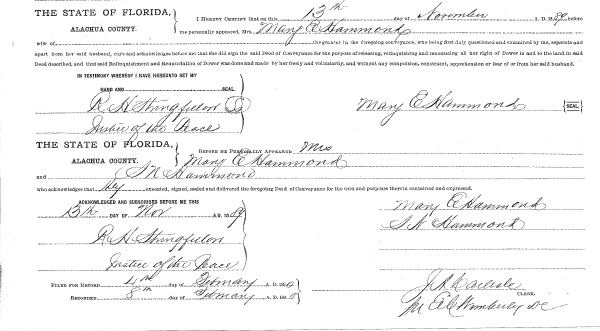 THE STATE OF FLORIDA,
ALACHUA COUNTY.
I HEREBY CERTIFY that on this 13th day of November A. D. 1889, before
me personally appeared, Mrs. Mary E Hammond
wife of the grantor in the foregoing conveyance, who being first duly questioned and examined by me, separate and
apart from her said husband, says and acknowledges before me that she did sign the said Deed of Conveyance for the purpose of releasing, relinquishing and renouncing all her right of Dower in and to the land in said
Deed described, and that said Relinquishment and Renunciation of Dower was done and made by her freely and voluntarily, and without any compulsion, constraint, apprehension or fear of or from her said husband.
IN TESTIMONY WHEREOF I HAVE HEREUNTO SET MY
HAND AND SEAL.
R H Stringfellow
Justice of the Peace
Mary E Hammond SEAL.
THE STATE OF FLORIDA,
ALACHUA COUNTY.
BEFORE ME PERSONALLY APPEARED Mrs
Mary E Hammond
and Hammond
who acknowledges that they executed, signed, sealed and delivered the foregoing Deed of Conveyance for the uses and purposes therein contained and expressed.
ACKNOWLEDGED AND SUBSCRIBED BEFORE ME THIS
13th DAY OF Nov A. D. 1889
R H Stringfellow
Justice of the Peace
Mary E Hammond
Hammond
FILED FOR RECORD 4th day of February A. D. 18
RECORDED 8th day of February A. D. 18
CLERK.